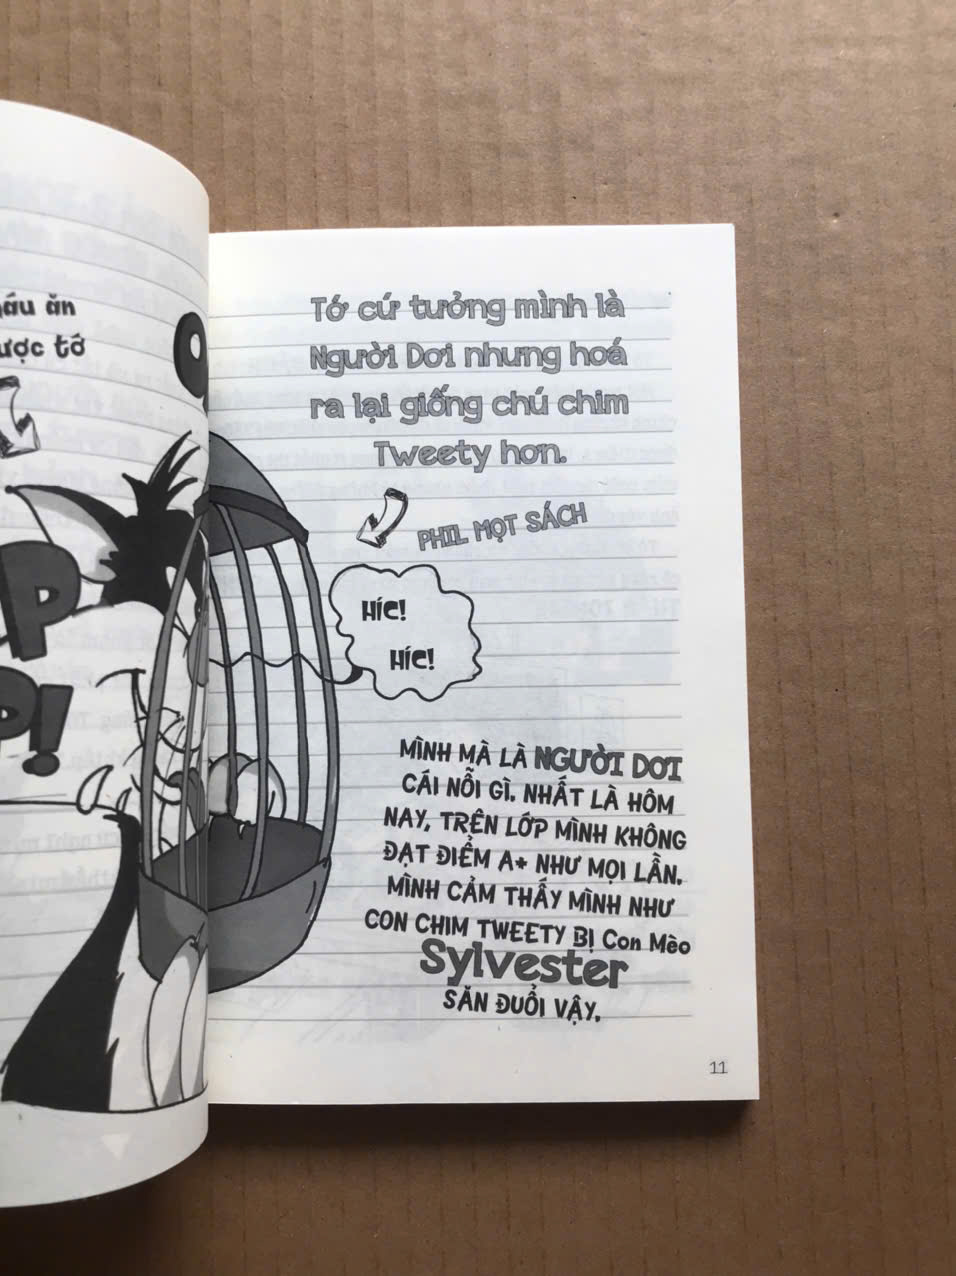 ăn
tớ
P
P!
Tớ cứ tưởng mình là
Người Dơi nhưng hoá
ra lại giống chú chim
Tweety hơn.
PHIL MỌT SÁCH
HÍC!
HÍC!
MÌNH MÀ LÀ NGƯỜI DƠI
CÁI NỖI GÌ. NHẤT LÀ HÔM
NAY, TRÊN LỚP MÌNH KHÔNG
ĐẠT ĐIỂM A+ NHƯ MỌI LẦN.
MÌNH CẢM THẤY MÌNH NHƯ
CON CHIM TWEETY BỊ Con Mèo
Sylvester
SĂN ĐUỔI VẬY.
11